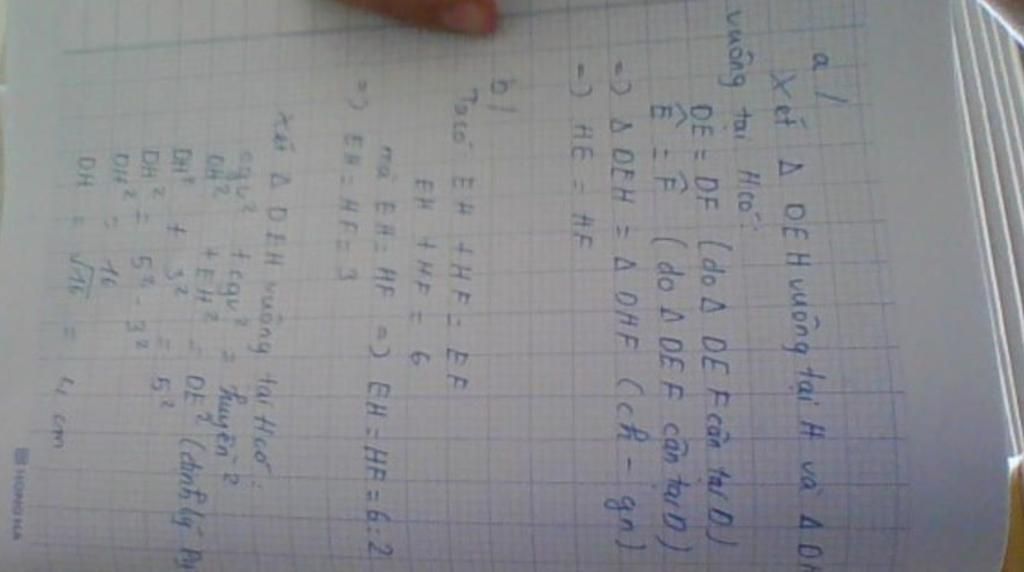 a/
Xét Δ DEH vuông tại H và Δ DH
vuông tại H có:
DE = DF (do Δ DEF cân tại D)
Ê = F̂ (do Δ DEF cân tại D)
=) Δ DEH = Δ DHF (ch - gn)
=) HE = HF
b/
Ta có: EH + HF = EF
EH + HF = 6
mà EH = HF =) EH = HF = 6:2
=) EH = HF = 3
Xét Δ DEH vuông tại H có:
cgv² + cgv² = huyền²
DH² + EH² = DE² (định lý Py
DH² + 3² = 5²
DH² = 5² - 3²
DH² = 16
DH = √16 = 4 cm